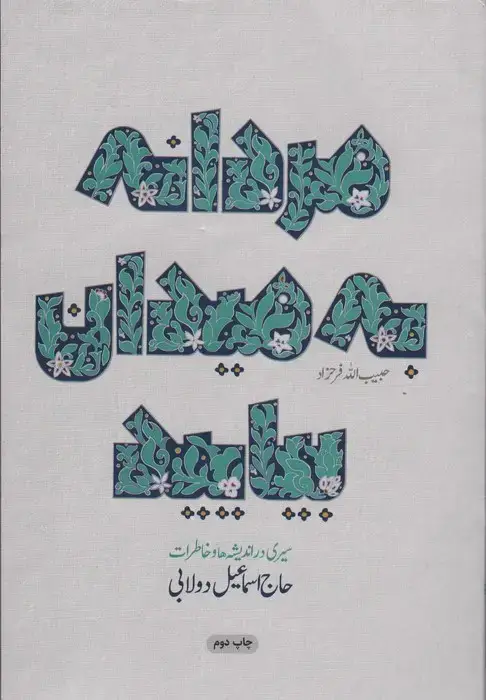 مردانه
به میدان
حبیب الله فرحزاد
بیایید
سیری در اندیشه ها و خاطرات
حاج اسماعیل دولابی
چاپ دوم